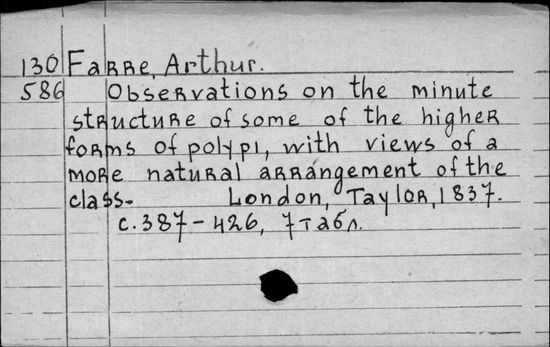 130 Farre, Arthur.
586 Observations on the minute
structure of some of the higher
forms of polypi, with views of a
more natural arrangement of the
class. London, Taylor, 1837.
с. 387-426, 7 табл.